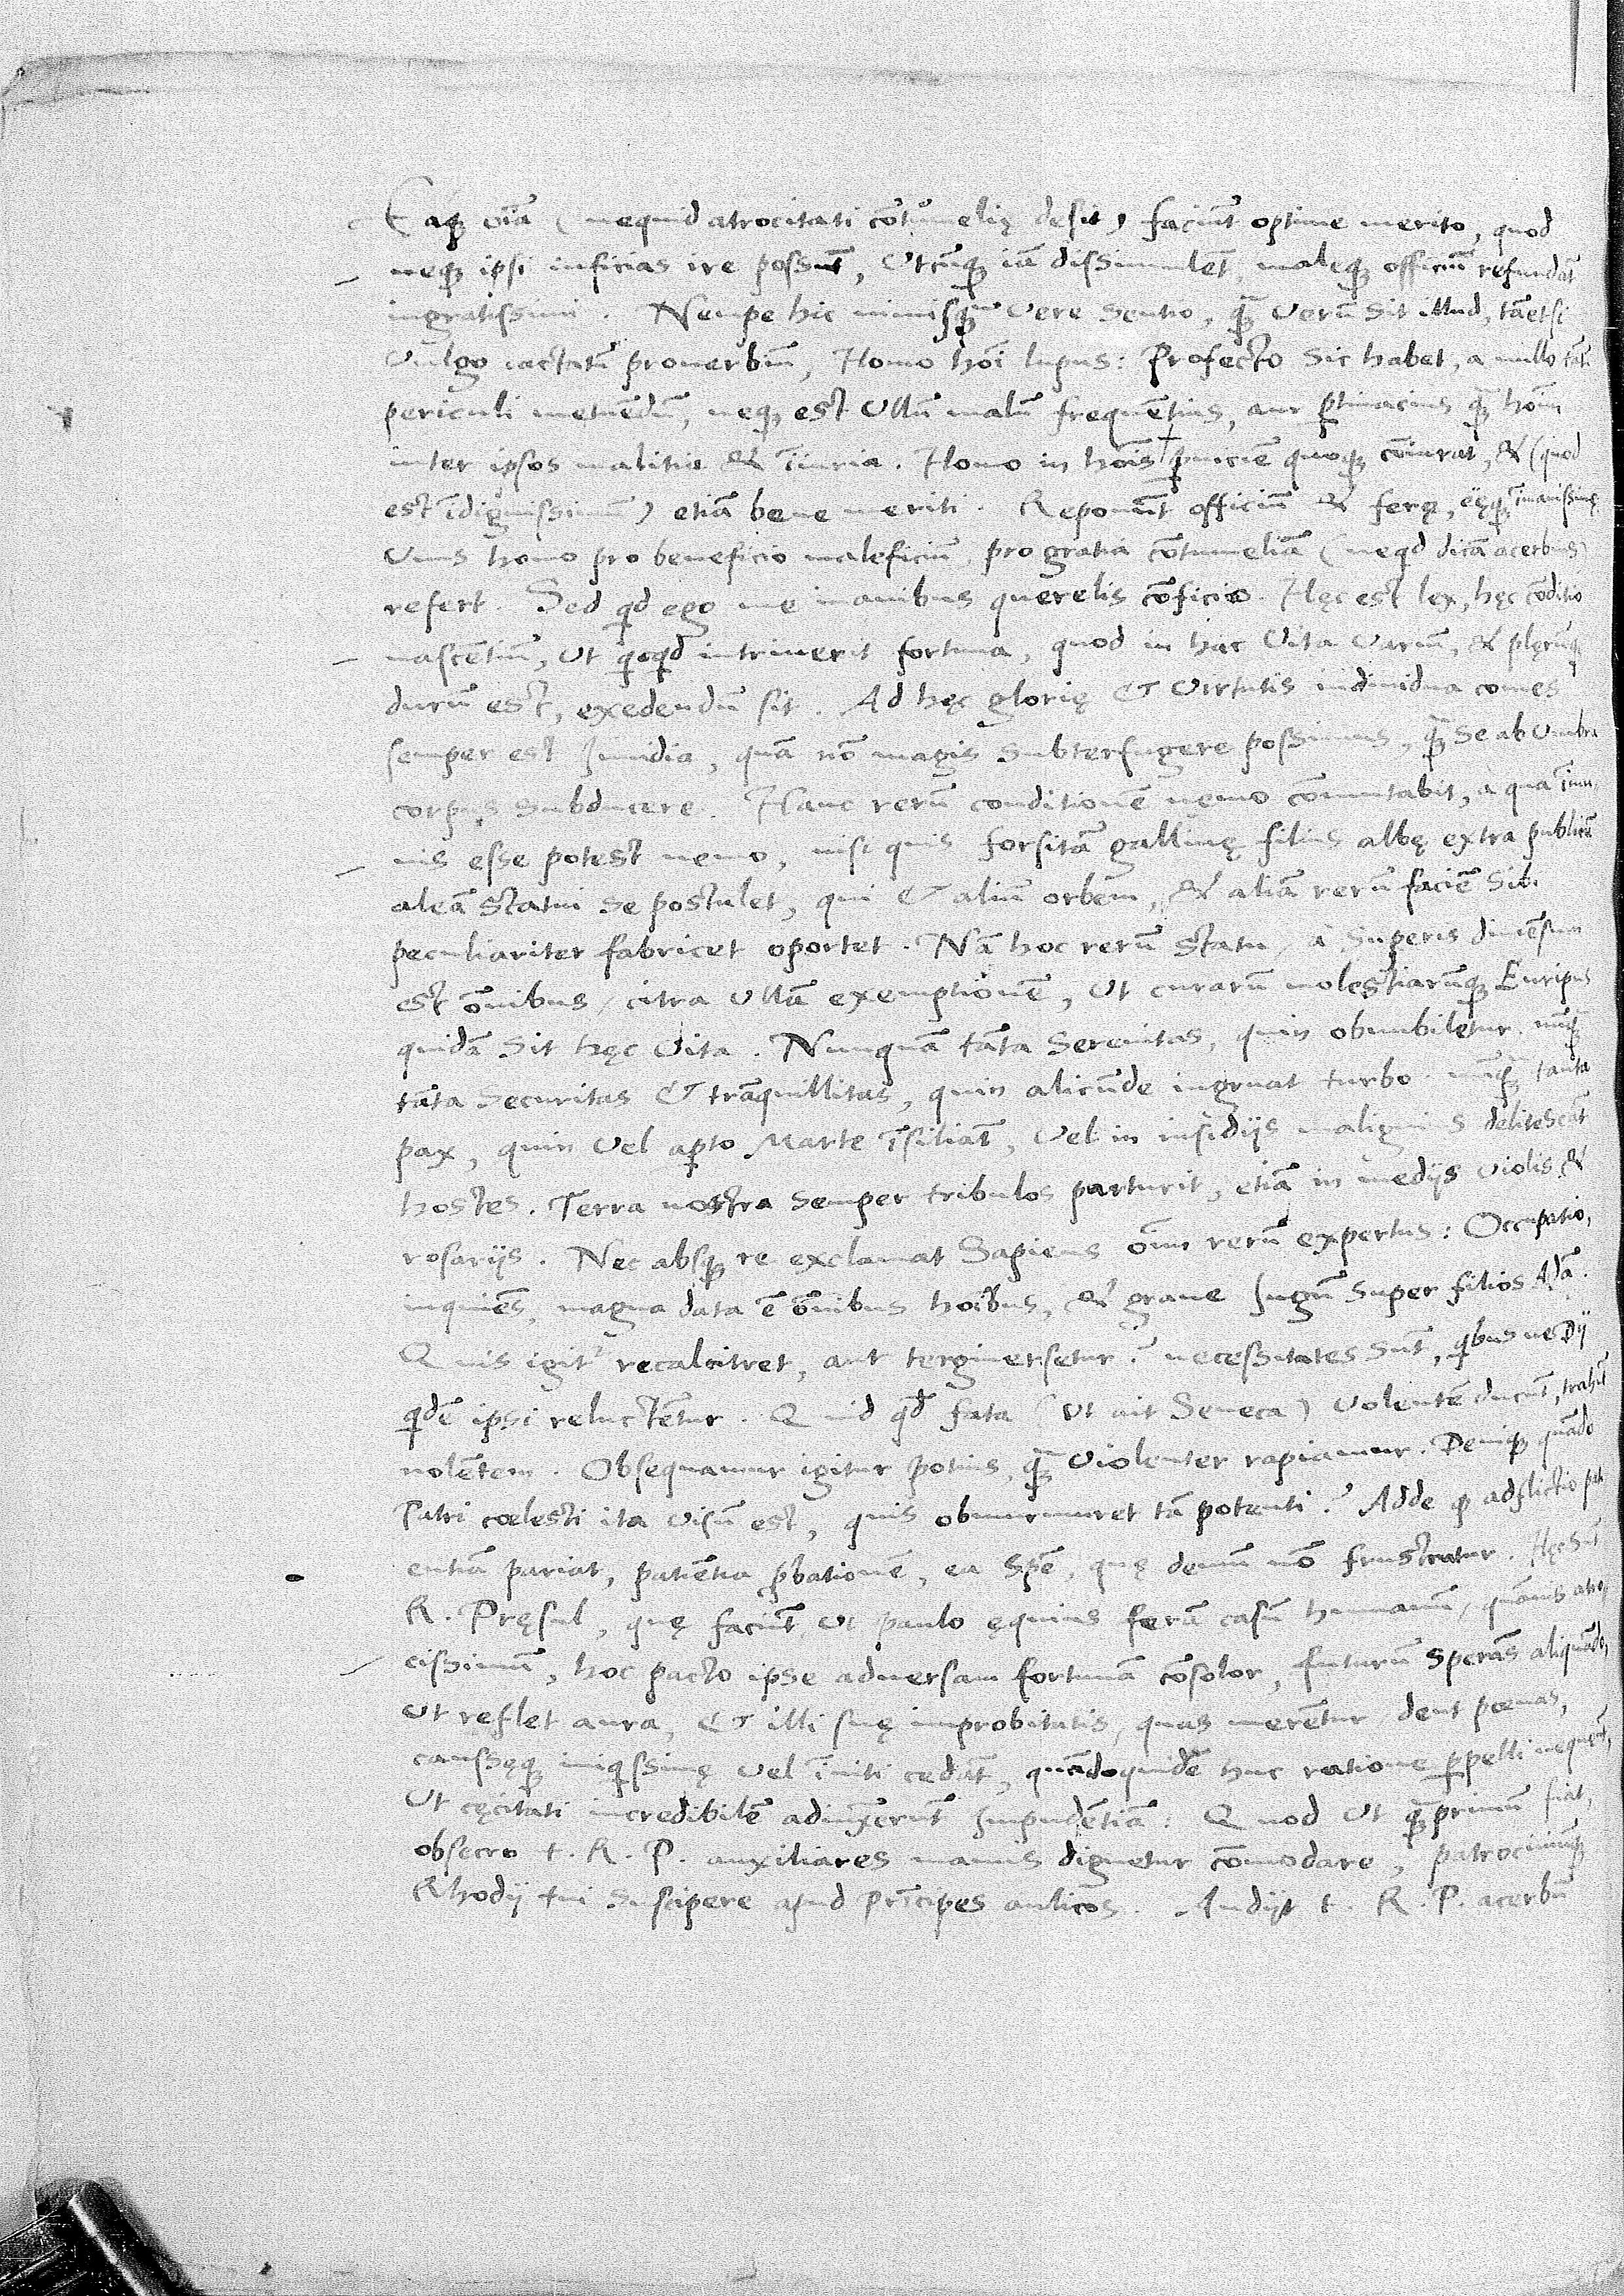 Eaq; oīa (nequid atrocitati cōtumelię desit) faciūt optime merito, quod
neq; ipsi inficias ire possūt, Utcūq; iā dissimulēt, maleq; officiū refundāt
ingratissimi. Nempe hic nimisq̄ Vere sentio, q̄ Verū sit illud, tāetsi
Vulgo iactatū prouerbiū, Homo hōi lupus: Profecto sic habet, a nullo tāt
periculi metuēdū, neq; est Ullū malū frequētius, aut ꝑtinacius q̄ hoīm
inter ipsos malitia & īiuria. Homo in hoīs ꝑniciē quoq; cōiurat, & (quod
est īdignissimū) etiā bene meriti. Reponūt officiū & ferę, eęq; īmanissimę
Unus homo pro beneficio maleficiū, pro gratia cōtumeliā (neqd dicā acerbius)
refert. Sed qd ego me inanibus querelis cōficio. Hęc est lex, hęc cōditio
nascētiū, Ut qcqd intriuerit fortuna, quod in hac Vita Variū, & plęrūq;
durū est, exedendū sit. Ad hęc glorię Et Virtutis indiuidua comes
semper est Inuidia, quā nō magis subterfugere possumus, q̄ se ab Umbra
corpus subducere. Hanc rerū conditionē nemo cōmutabit, a qua īmu
nis esse potest nemo, nisi quis forsitā gallinę filius albę extra publicā
aleā statui se postulet, qui Et aliū orbem, & aliā rerū faciē sibi
peculiariter fabricet oportet. Nā hoc rerū statu, a Superis dimēsum
est ōnibus, citra Ullā exemptionē, Ut curarū molestiarūq; Euripus
quidā sit hęc Vita. Nunquā tāta serenitas, quin obnubiletur. nūq̄
tāta securitas Et trāquillitas, quin alicūde ingruat turbo. nūq̄ tanta
pax, quin Vel aꝑto Marte īsiliāt, Vel in insidijs malignis delitescāt
hostes. Terra nostra semper tribulos parturit, etiā in medijs Violis &
rosarijs. Nec absq; re exclamat Sapiens ōniū rerū expertus: Occupatio,
inquiēs, magna data ē ōnibus hoībus, & graue Iugū super filios Adā.
Quis igitr recalcitret, aut tergiuersetur? necessitates sūt, qbus ne Dij
qdē ipsi reluctētur. Quid qd fata (Ut ait Seneca) Volentē ducūt, trahūt
nolētem. Obsequamur igitur potius, q̄ Violenter rapiamur. Deniq; quādo
Patri coelesti ita Visū est, quis obmurmuret tā potenti? Adde q̄ adflictio pati
entiā pariat, patiētia ꝓbationē, ea spē, quę demū nō frustratur. Hęc sūt
R. Pręsul, quę faciūt, Ut paulo ęquius ferā casū humanū, quāuis atro
cissimū, hoc pacto ipse aduersam fortunā cōsolor, futurū sperās aliquādo,
Ut reflet aura, Et illi suę improbitatis, quas merētur, dent poenas,
caussęq; iniqssimę Vel īuiti cedāt, quādoquidē huc ratione ꝑpelli nequeūt,
Ut cęcitati incredibilē adiūxerūt Impudētiā: Quod Ut q̄primū fiat,
obsecro t. R. P. auxiliares manus dignetur cōmodare, patrociniūq;
Rhodij tui suscipere apud prīcipes aulicos. Audijt t. R. P. acerbū